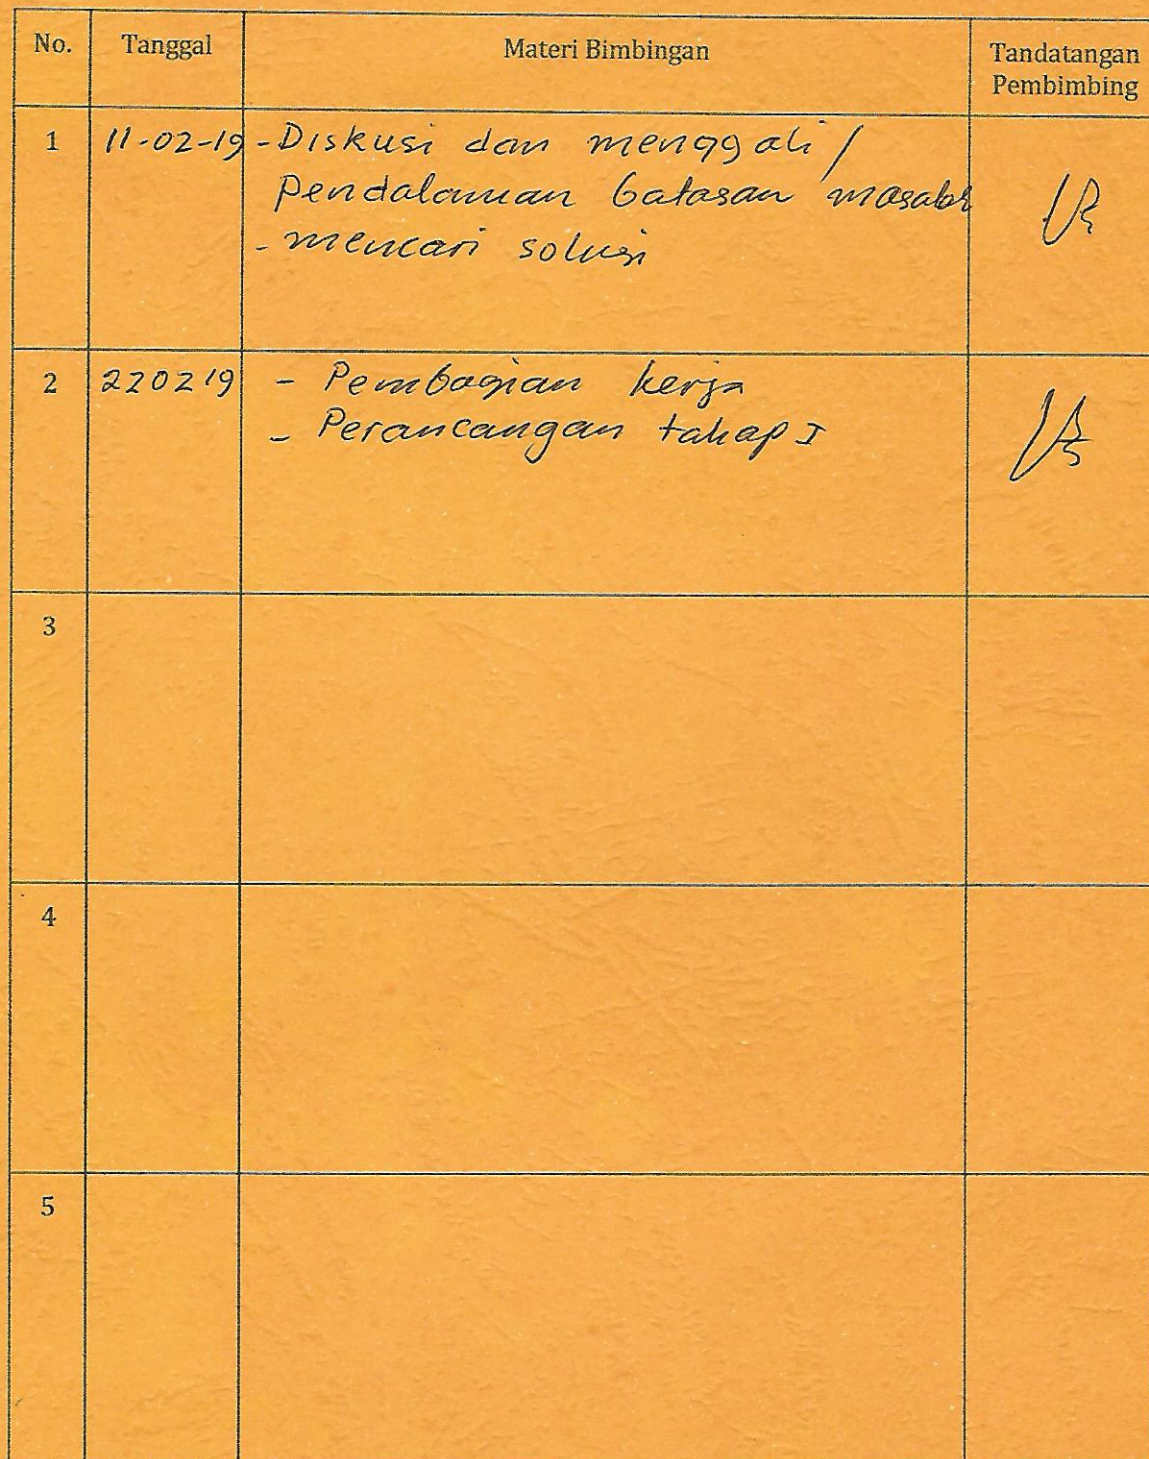 No. Tanggal Materi Bimbingan Tandatangan
Pembimbing
1 11-02-19 - Diskusi dan menggali /
Pendalaman batasan masalah
- mencari solusi
2 220219 - Pembagian kerja
- Perancangan tahap I
3
4
5